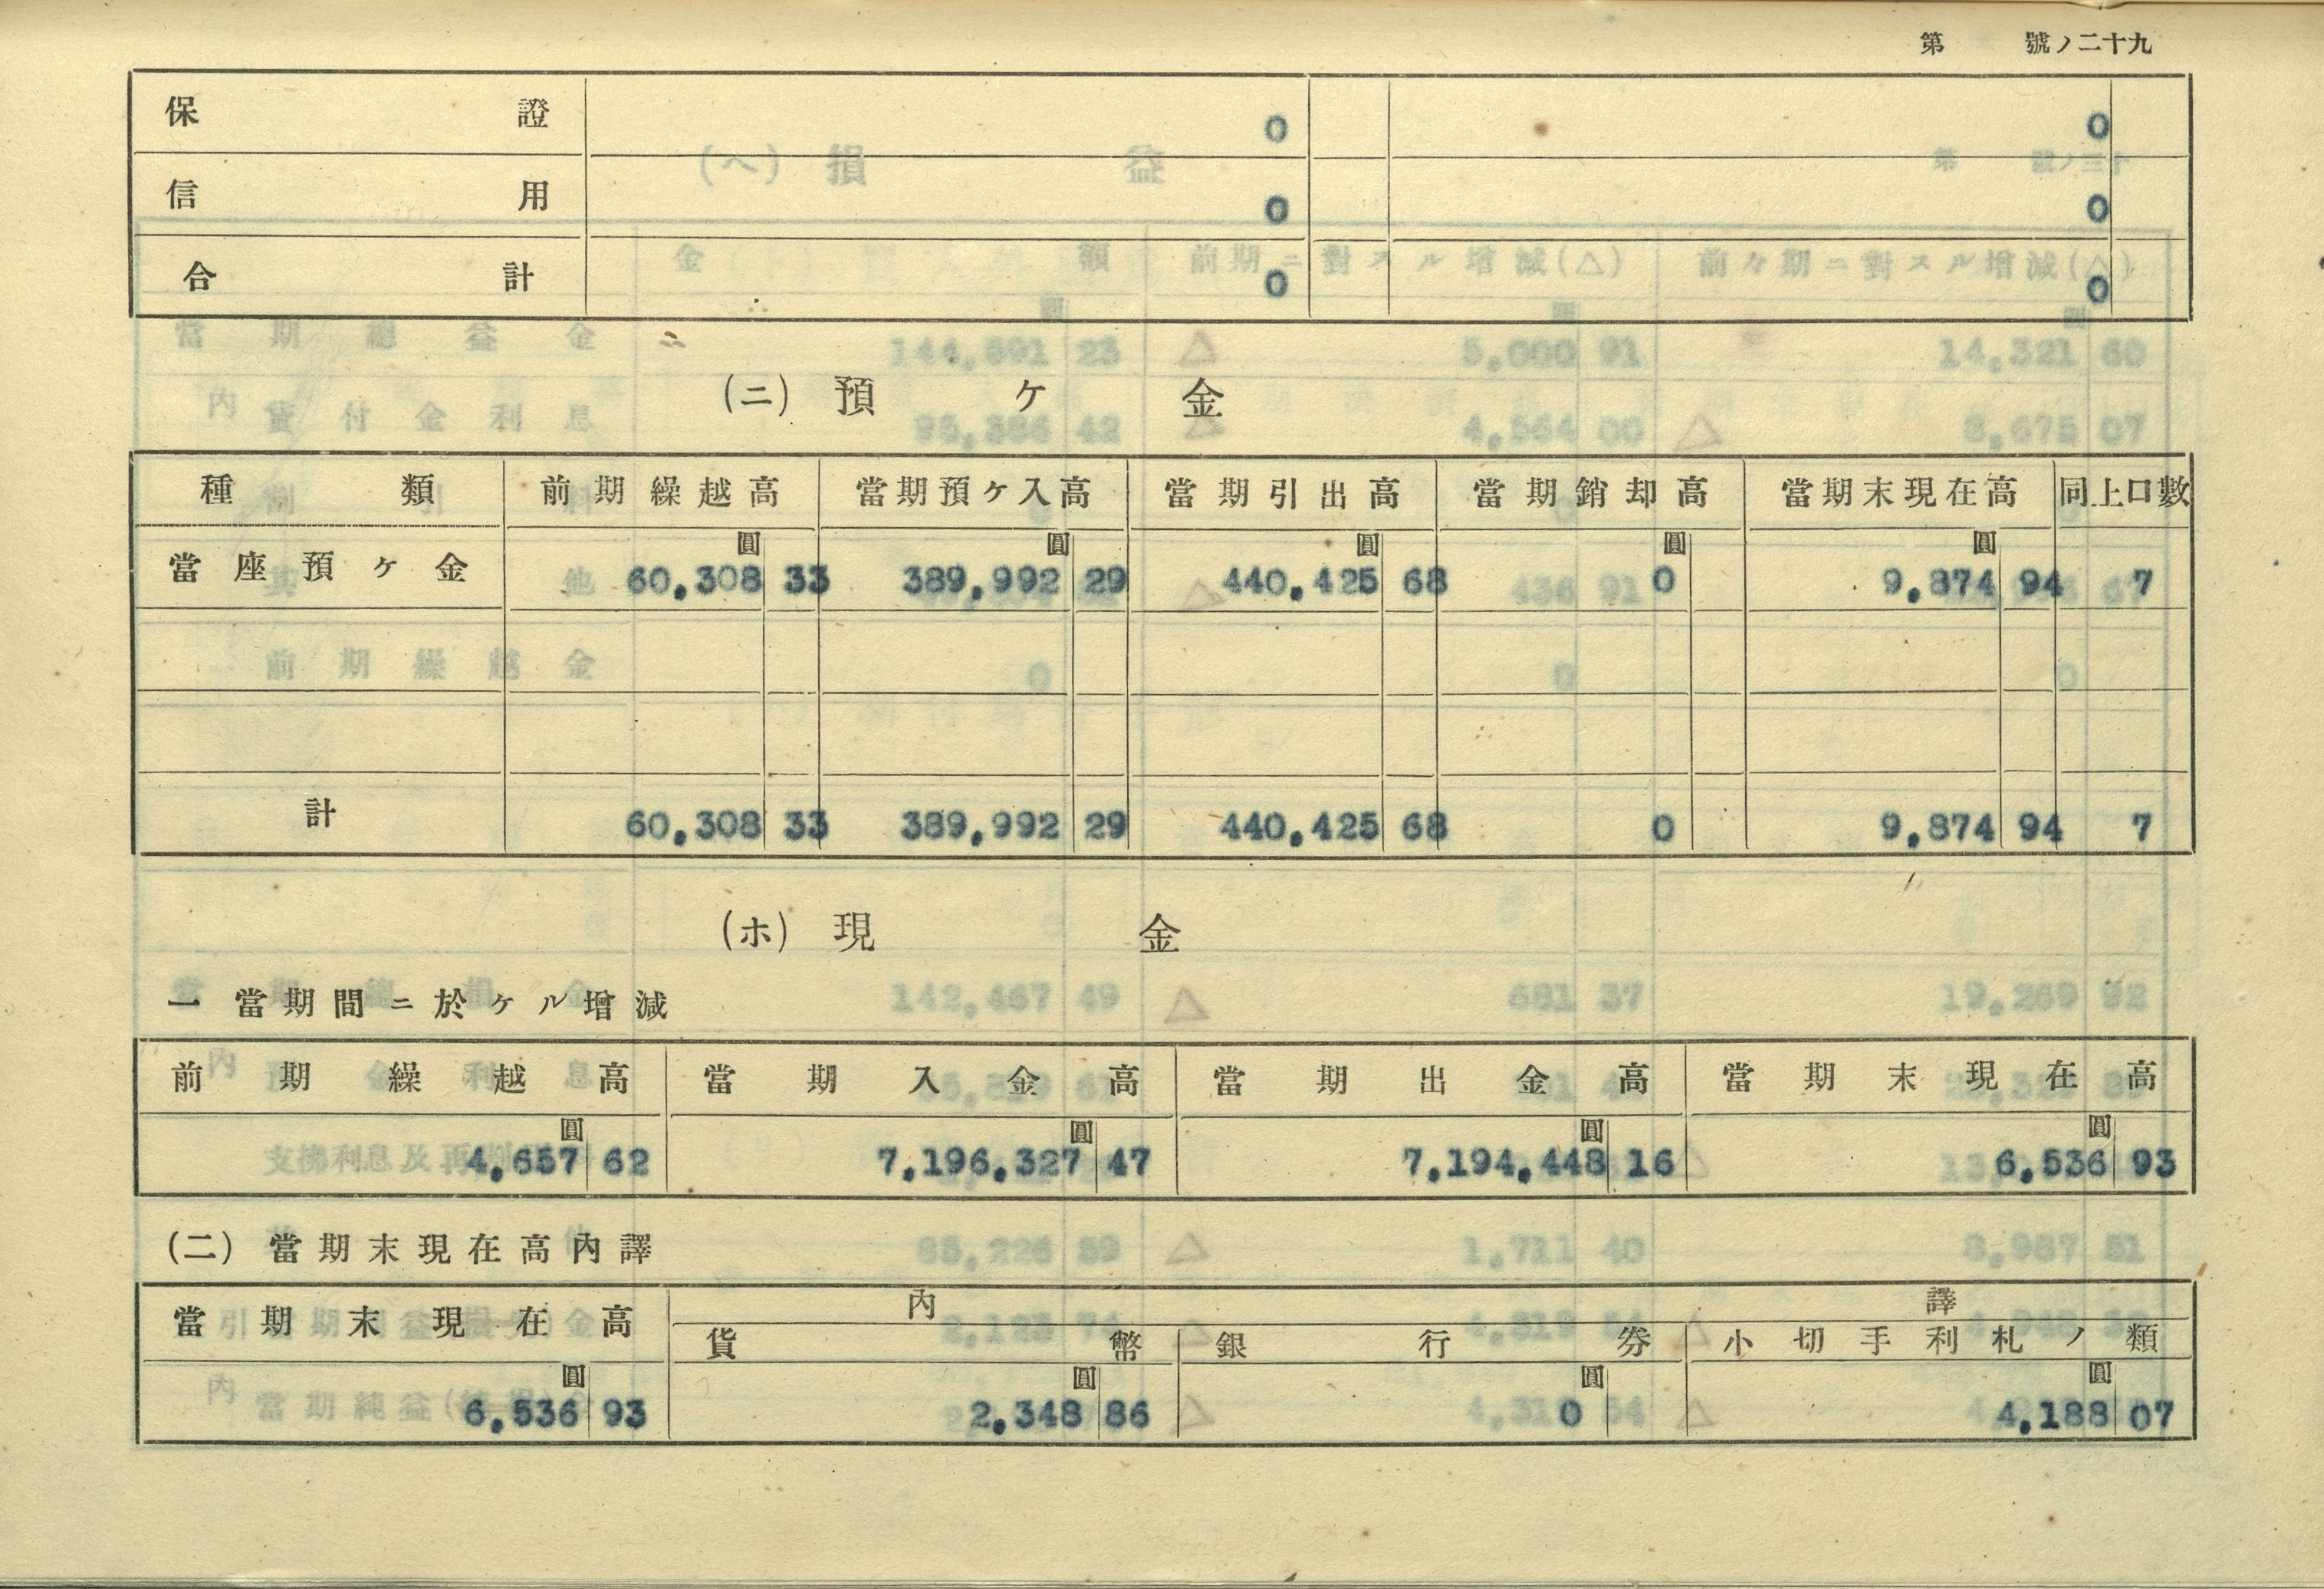 第 號ノ二十九
保證 0 0
信用 0 0
合計 0 0
(ニ) 預ケ金
種類 前期繰越高 當期預ケ入高 當期引出高 當期銷却高 當期末現在高 同上口數
圓 圓 圓 圓 圓
當座預ケ金 60,308 33 389,992 29 440,425 68 0 9,874 94 7
計 60,308 33 389,992 29 440,425 68 0 9,874 94 7
(ホ) 現金
一 當期間ニ於ケル增減
前期繰越高 當期入金高 當期出金高 當期末現在高
圓 圓 圓 圓
4,657 62 7,196,327 47 7,194,448 16 6,536 93
(二) 當期末現在高內譯
當期末現在高 內譯
貨幣 銀行券 小切手利札ノ類
圓 圓 圓 圓
6,536 93 2,348 86 0 4,188 07